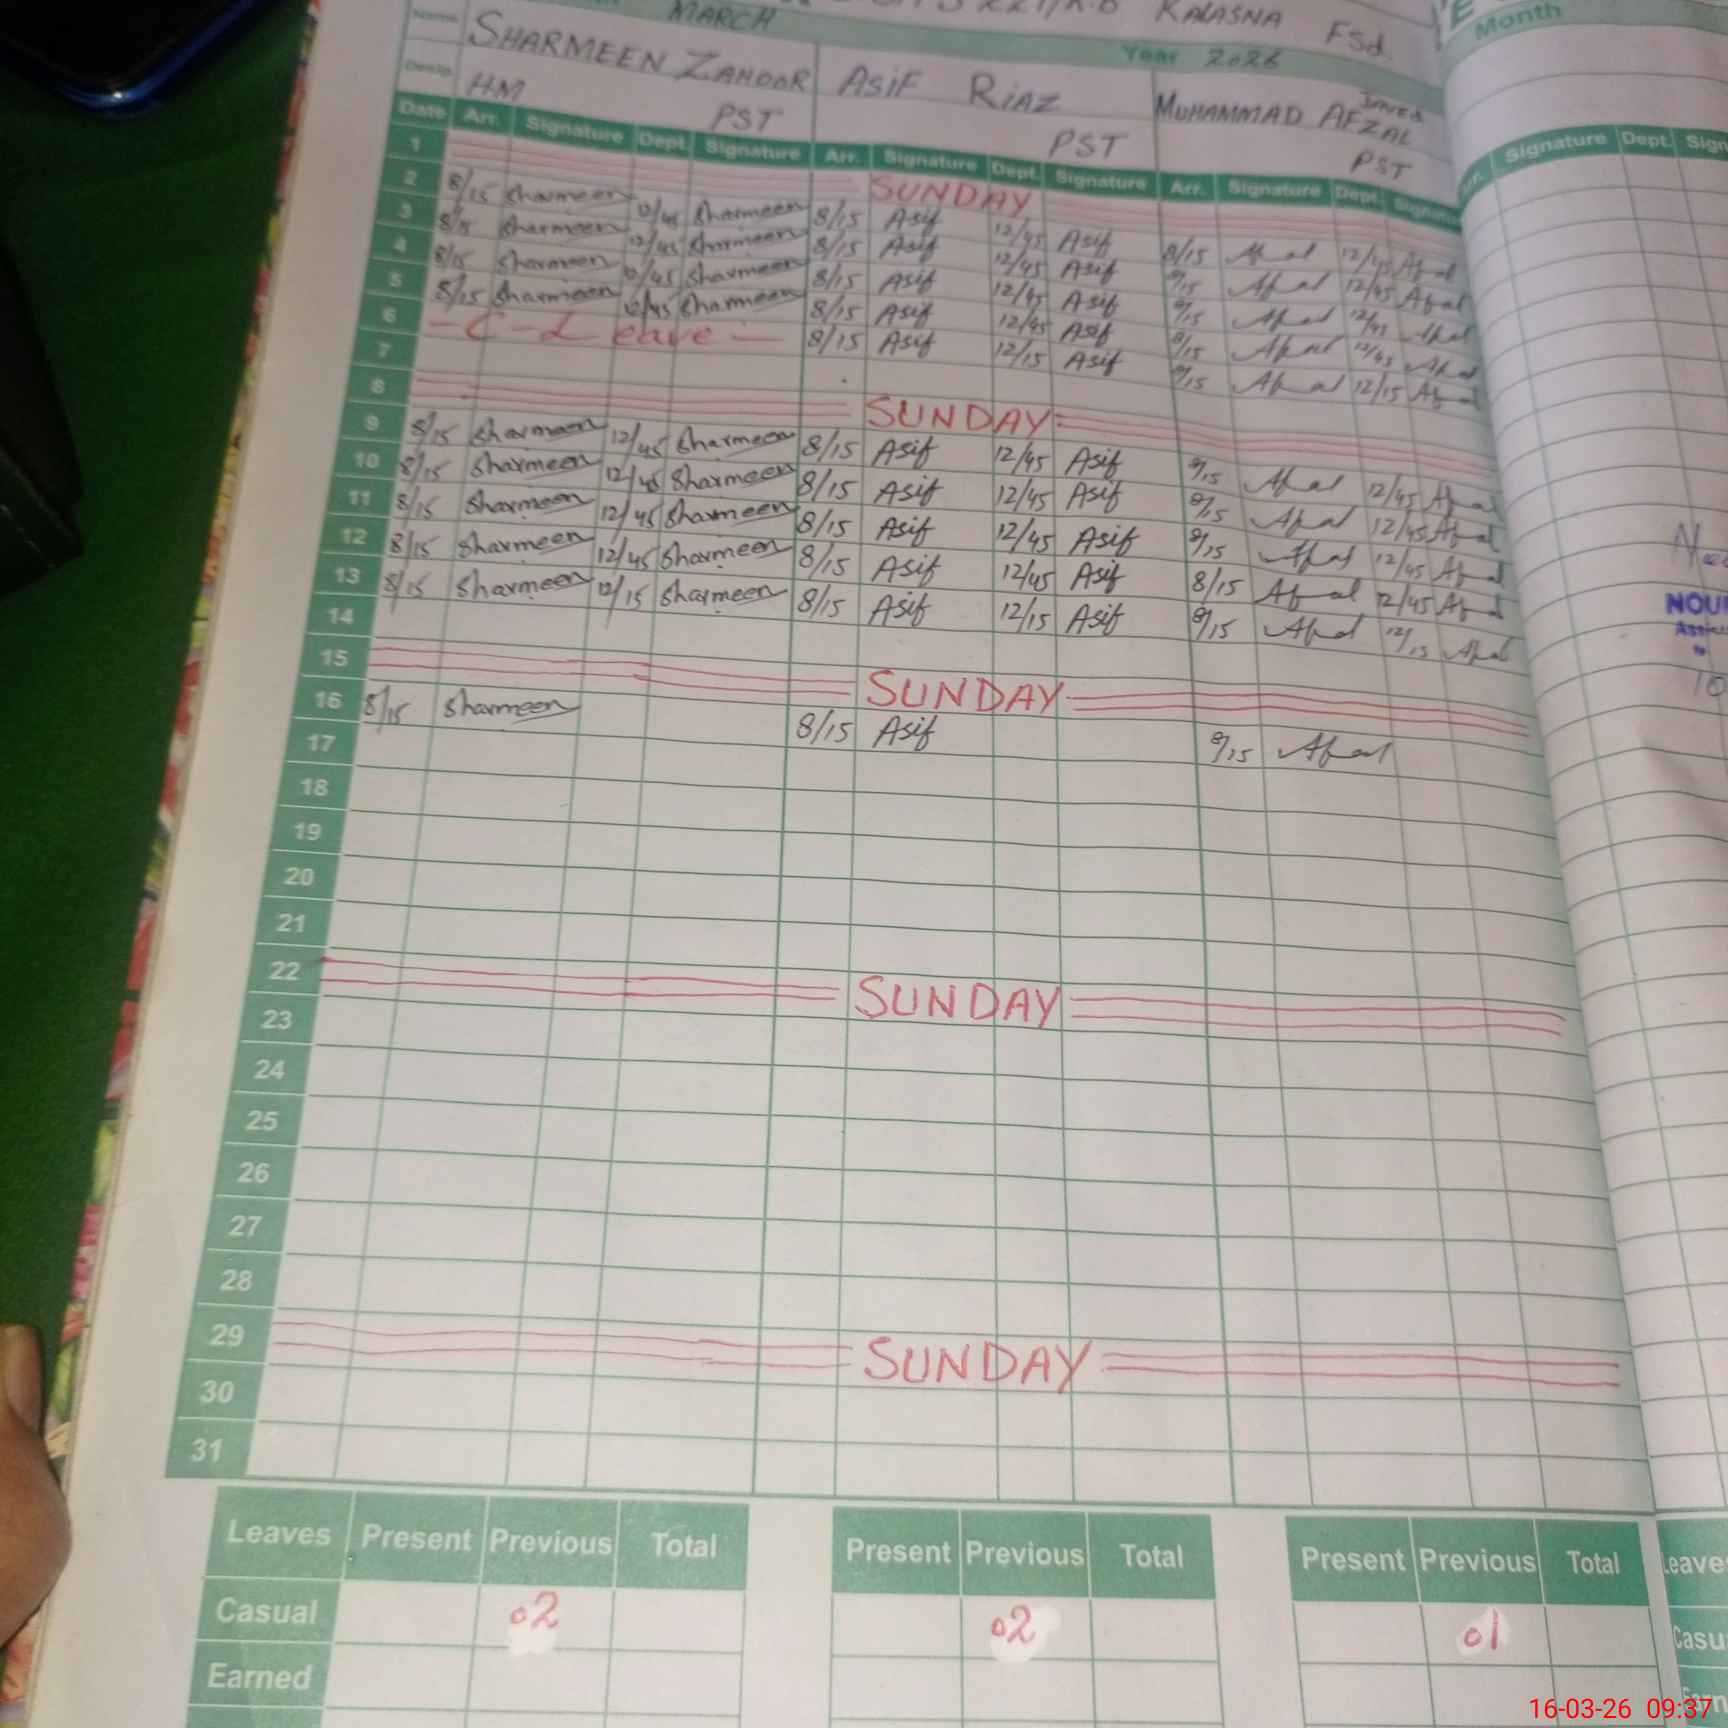 MARCH KALASNA FSd.
Year 2026 Month
Name SHARMEEN ZAHOOR ASIF RIAZ MUHAMMAD AFZAL Javed
Desig. HM PST PST PST
Date Arr. Signature Dept. Signature Arr. Signature Dept. Signature Arr. Signature Dept. Signature Signature Dept.
1 SUNDAY
2 8/15 Sharmeen 12/45 Sharmeen 8/15 Asif 12/45 Asif 8/15 Afzal 12/45 Afzal
3 8/15 Sharmeen 12/45 Sharmeen 8/15 Asif 12/45 Asif 8/15 Afzal 12/45 Afzal
4 8/15 Sharmeen 12/45 Sharmeen 8/15 Asif 12/45 Asif 8/15 Afzal 12/45 Afzal
5 8/15 Sharmeen 12/45 Sharmeen 8/15 Asif 12/45 Asif 8/15 Afzal 12/45 Afzal
6 - C - Leave - 8/15 Asif 12/15 Asif 8/15 Afzal 12/15 Afzal
7
8 SUNDAY
9 8/15 Sharmeen 12/45 Sharmeen 8/15 Asif 12/45 Asif 8/15 Afzal 12/45 Afzal
10 8/15 Sharmeen 12/45 Sharmeen 8/15 Asif 12/45 Asif 8/15 Afzal 12/45 Afzal
11 8/15 Sharmeen 12/45 Sharmeen 8/15 Asif 12/45 Asif 8/15 Afzal 12/45 Afzal
12 8/15 Sharmeen 12/45 Sharmeen 8/15 Asif 12/45 Asif 8/15 Afzal 12/45 Afzal
13 8/15 Sharmeen 12/15 Sharmeen 8/15 Asif 12/15 Asif 8/15 Afzal 12/15 Afzal
14
15 SUNDAY
16 8/15 Sharmeen 8/15 Asif 8/15 Afzal
17
18
19
20
21
22 SUNDAY
23
24
25
26
27
28
29 SUNDAY
30
31
Leaves Present Previous Total Present Previous Total Present Previous Total
Casual 02 02 01
Earned
16-03-26 09:37